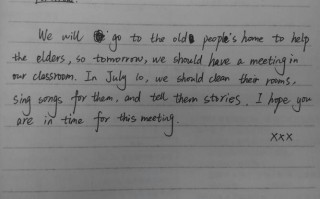 We will go to the old people's home to help
the elders, so tomorrow, we should have a meeting in
our classroom. In July 10, we should clean their rooms,
sing songs for them, and tell them stories. I hope you
are in time for this meeting.
XXX